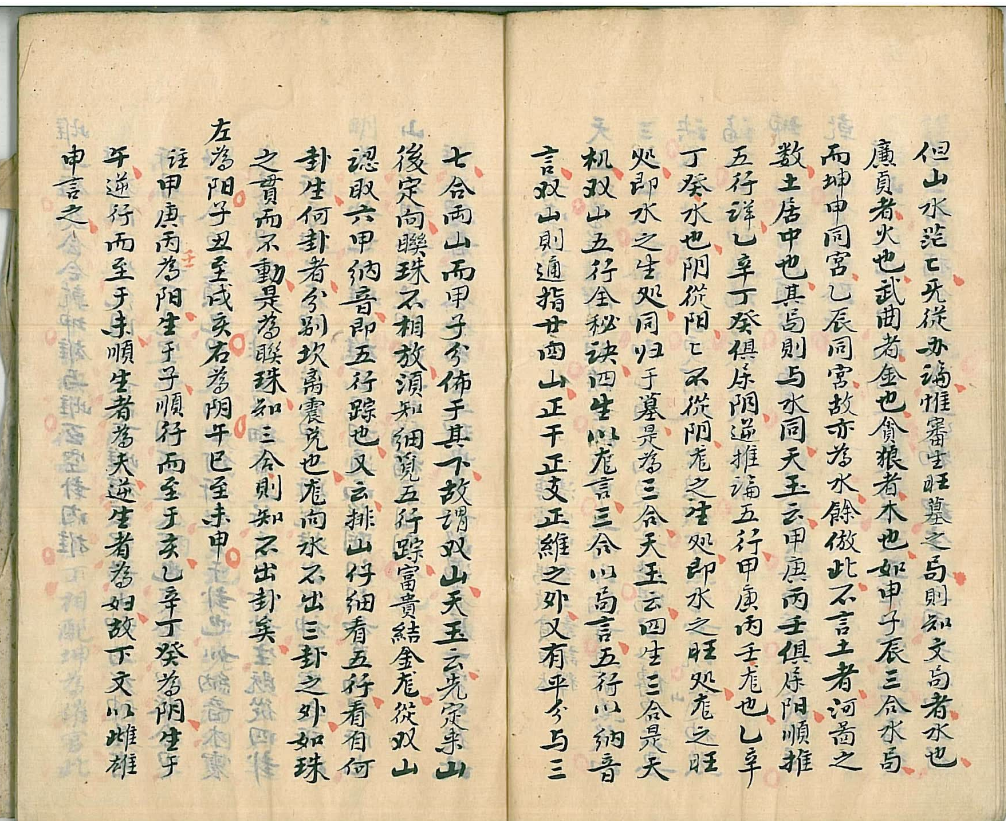 但山水茫匕旡從办論惟審生旺墓之局則知文曲者水也
廉貞者火也武曲者金也貪狼者木也如申子辰三合水局
而坤申同宮乙辰同宮故亦為水餘倣此不言土者河啚之
数土居中也其局則与水同天玉云甲庚丙壬俱属阳順推
五行詳乙辛丁癸俱属阴逆推論五行甲庚丙壬龙也乙辛
丁癸水也阴從阳匕不從阴龙之生処即水之旺処龙之旺
処即水之生処同归于墓是為三合天玉云四生三合是天
机双山五行全秘訣四生以龙言三合以局言五行以納音
言双山則通指廿四山正干正支正維之外又有平分与三
七合両山而甲子分佈于其下故謂双山天玉云先定来山
後定向聯珠不相放須知細覓五行踪富貴結金龙從双山
認取六甲納音即五行踪也又云排山仔細看五行看自何
卦生何卦者分别坎离震兑也龙向水不出三卦之外如珠
之貫而不動是為聯珠知三合則知不出卦矣
左為阳子丑至戌亥右為阴午巳至未申
註甲庚丙壬為阳生于子順行而至于亥乙辛丁癸為阴生于
午逆行而至于未順生者為夫逆生者為妇故下文以雌雄
申言之